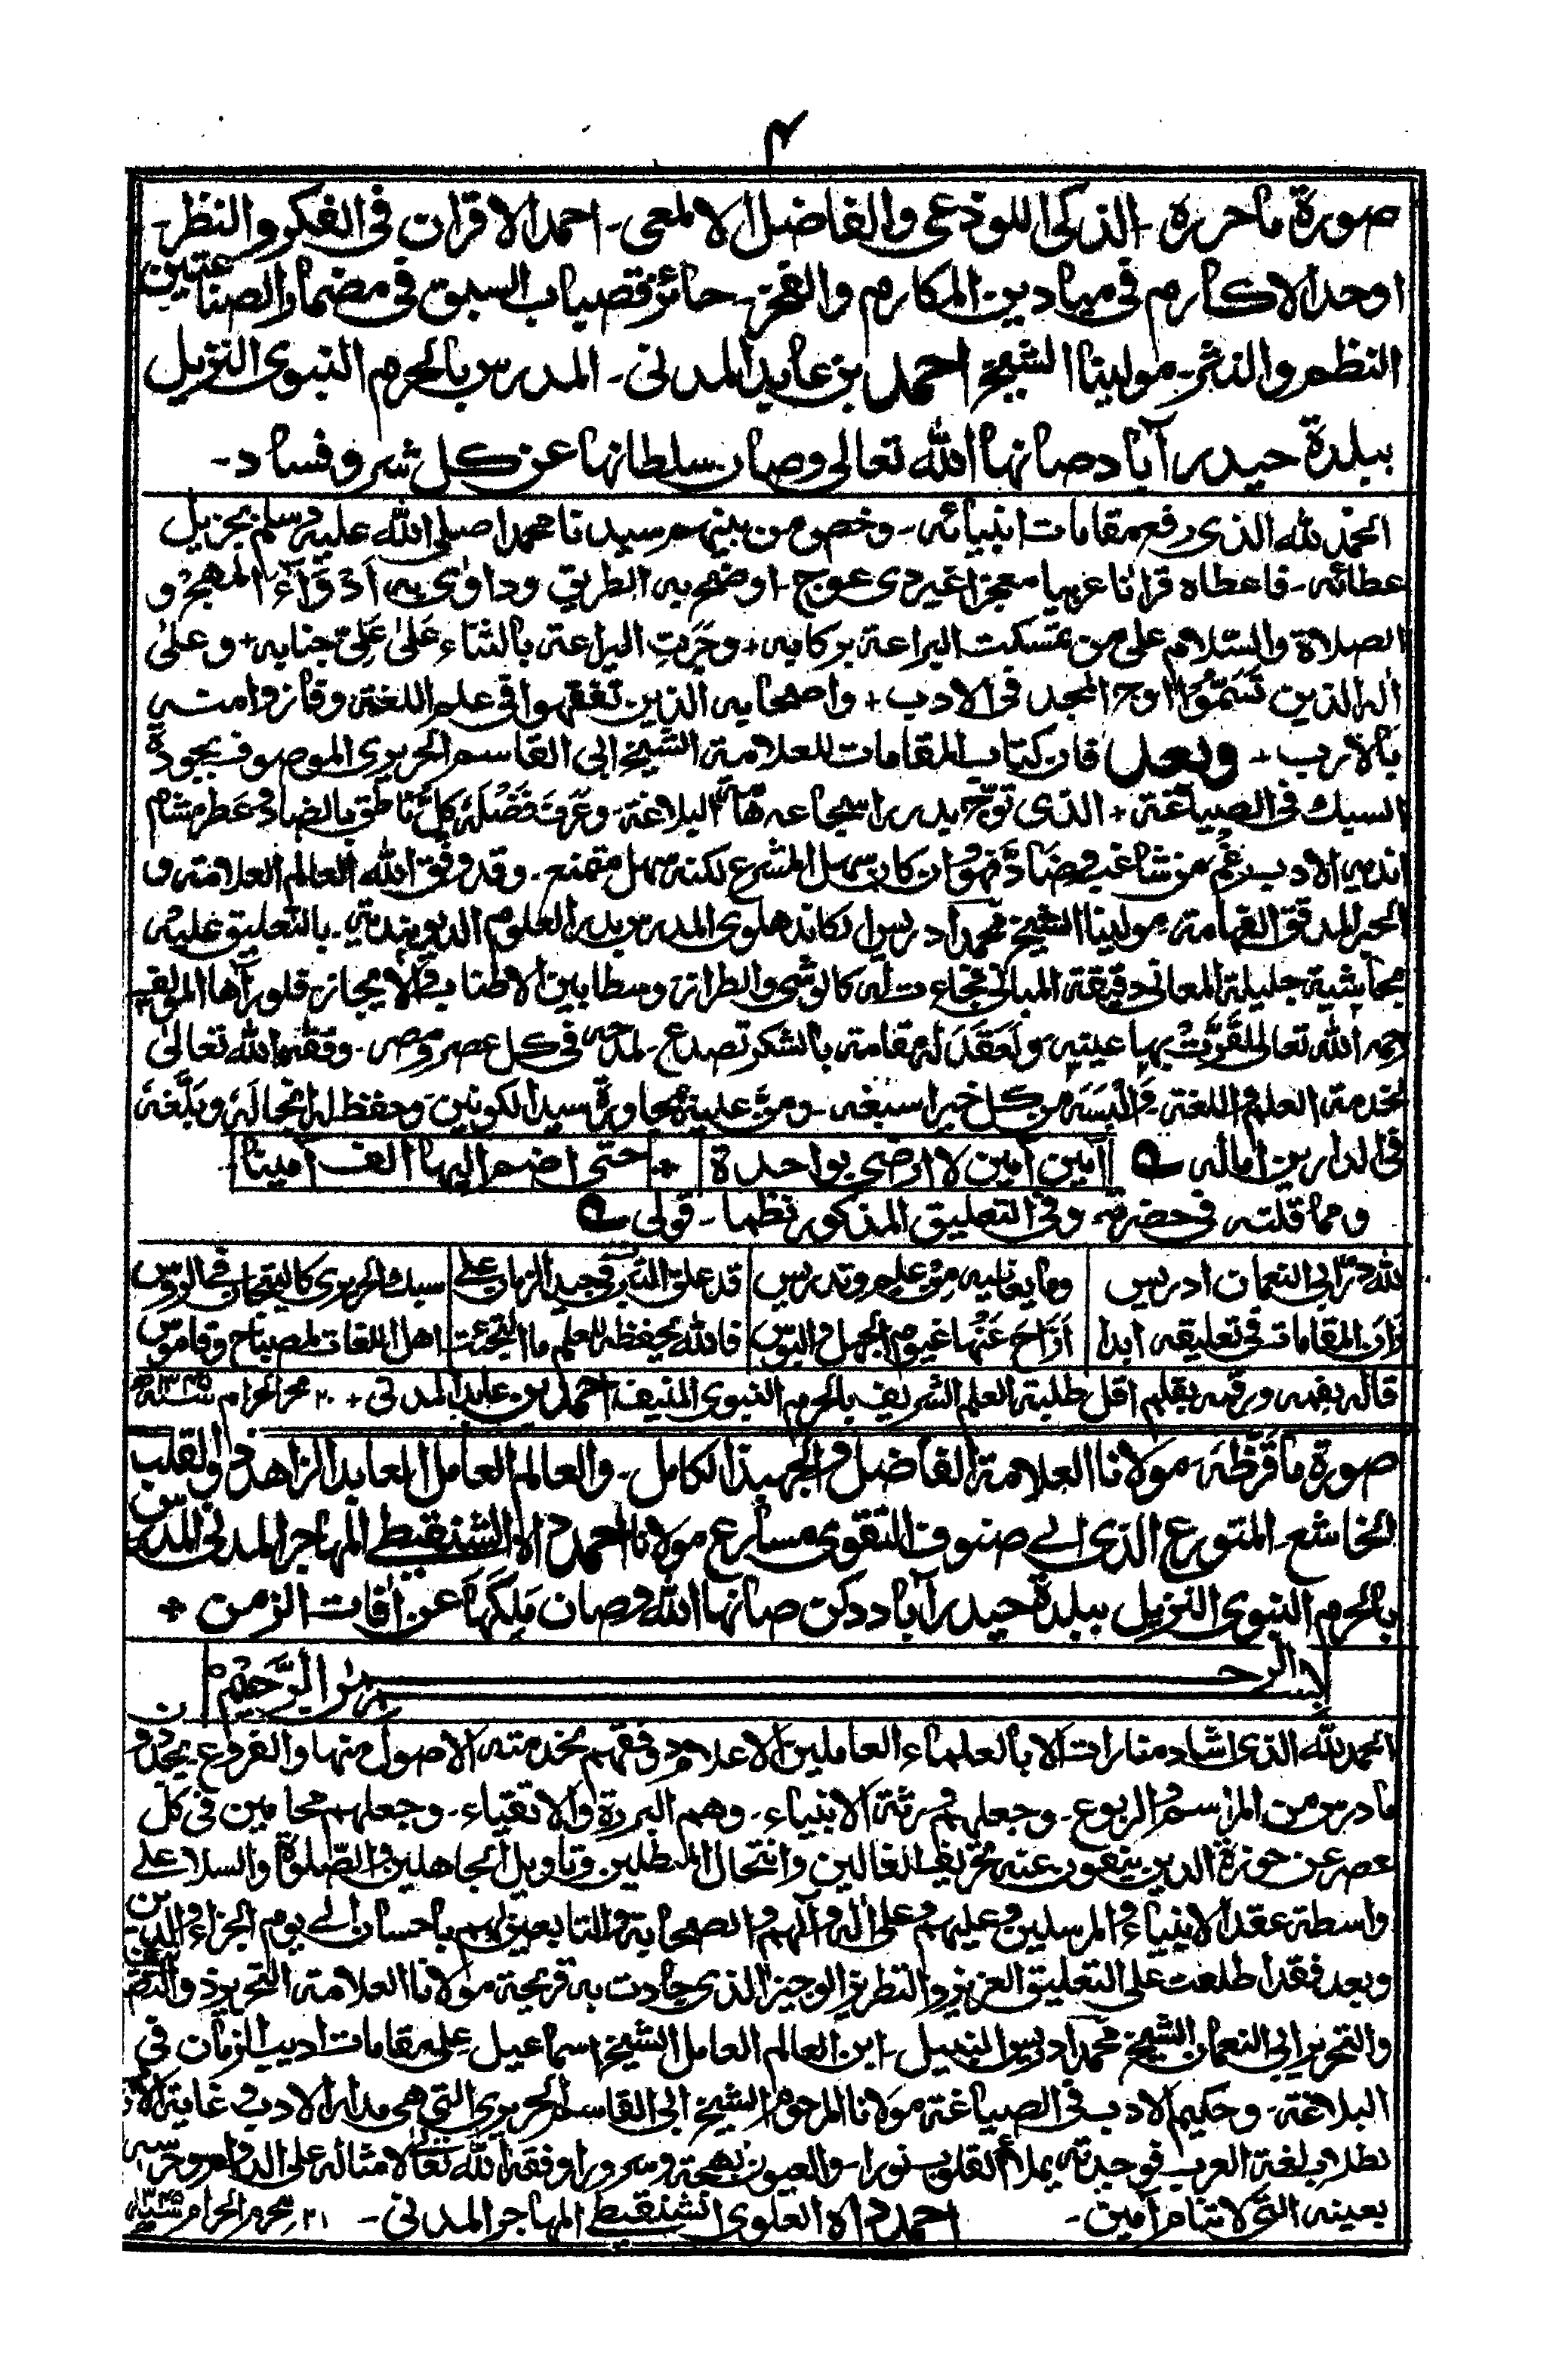 ۴
صورة ما حرره - الذكى اللوذعى والفاضل الالمعى - احمد الاقران فى الفكر والنظر -
اوحد الاكارم فى ميادين المكارم والفخر - حائز قصبات السبق فى مضمار الصناعتين
النظم والنثر - مولينا الشيخ احمد بن عابد المدنى - المدرس بالحرم النبوى النزيل
ببلدة حيدر آباد صانها الله تعالى وصان سلطانها عن كل شر و فساد -
الحمد لله الذى رفع مقامات انبيائه - وخص من بينهم سيدنا محمدا صلى الله عليه وسلم بجزيل
عطائه - فاعطاه قرانا عربيا معجزا غير ذى عوج - اوضح به الطريق وداوى به اَدْوَاءَ المهج و
الصلاة والسّلام على من تمسكت البراعة بركابه + وجَرَتِ اليراعة بالثناء عَلىٰ عَلِىّ جنابه + وعلىٰ
اٰله الذين تَسَنَّمُوا اوج المجد فى الادب + واصحابه الذين تفقهوا فى علم اللغة وفازوا منه
بالارب + وبعد فان كتاب المقامات للعلامة الشيخ ابى القاسم الحريرى الموصوف بجودة
السبك فى الصياغة + الذى توّج بدرر اسجاعه هام البلاغة - وعَرفَ فَضْلَه كلُّ ناطق بالضاد وعَطر مشام
اندية الادب رغم من شاغب وضادّ فهو وان كان سهل المشرع لكنه سهل ممتنع - وقد وفق الله العالم العلامة و
الحبر المدقق الفهامة مولينا الشيخ محمد ادريس الكاندهلوى المدرس بدار العلوم الديوبندية - بالتعليق عليه
بحاشية جليلة المعانى دقيقة المبانى فجاءت له كالوشى والطراز وسطا بين الاطناب والايجاز - فلو رآها المؤلف
رحمه الله تعالى لقَرَّتْ بها عينه ولعَقَدَ له مقامة بالشكر تصدع - لمدحه فى كل عصر ومصر - وفقه الله تعالىٰ
لخدمة العلم واللغة - وَاَلبَسَه من كل خير اسبغه - ومنّ عليه بمجاورة سيد الكونين - وحفظ له انجاله وبَلَّغَه
فى الدارين اماله ے آمين آمين لا ارضى بواحدة + حتى اضم اليها الف آمينا
ومما قلته فى حضرته وفى التعليق المذكور نظما - قولى ے
لله در ابى النعمان ادريس وما يعانيه من علم وتدريس قد علق الدر فى جيد الزمان على سبك الحريرى كالتيجان فى الروس
زان المقامات فى تعليقه ابدا اَزَاحَ عَنْها غيوم الجهل والبوس فالله يحفظه للعلم ما التجئت اهل اللغات لمصباح وقاموس
قاله بفمه ورقمه بقلمه اقل طلبة العلم الشريف بالحرم النبوى المنيف احمد بن عابد المدنى + ٢٠ محرالحرام سنة ١٣٤٥ه
صورة ما قَرَّظَه - مولانا العلامة الفاضل والجهبذ الكامل - والعالم العامل العابد الزاهد ذو القلب
الخاشع - المتورع الذى الى صنوف التقوى مسارع مولانا احمد الشنقيطے المهاجر المدنى المدرس
بالحرم النبوى النزيل ببلدة حيدر آباد دكن صانها الله وصان مَلِكَها عن اٰفات الزمن +
بسم الله الرحمٰن الرَّحِيْم
الحمد لله الذى اشاد منارات الا بالعلماء العاملين الاعلام ووفقهم بخدمته الاصول منها والفروع يجددون
ما درس من المراسم والربوع - وجعلهم ورثة الانبياء - وهم البررة والاتقياء - وجعلهم محامين فى كل
عصر عن حوزة الدين ينفون عنه تحريف الغالين وانتحال المبطلين وتاويل الجاهلين والصّلوٰة والسلام على
واسطة عقد الانبياء والمرسلين وعليهم وعلى اٰله وآلهم والصحابة والتابعين لهم باحسان الى يوم الجزاء والدين
وبعد فقد اطلعت على التعليق العزيز والتطريز الوجيز الذى جادت به قريحة مولانا العلامة النحرير ذو
والتحرير ابى النعمان الشيخ محمد ادريس النبيل - ابن العالم العامل الشيخ اسماعيل على مقامات اديب الزمان فى
البلاغة - وحكيم الادب فى الصياغة مولانا المرحوم الشيخ ابى القاسم الحريرى التى هى مدار الادب وغاية
لطلاب لغة العرب فوجدته يملأ القلوب نورا - والعيون بهجة وسرورا وفقه الله تعالى لامثاله على الدوام وحرسه
بعينه التى لا تنام آمين - احمد العلوى الشنقيطے المهاجر المدنى - ٢١ محرم الحرام سنة ١٣٤٥ه